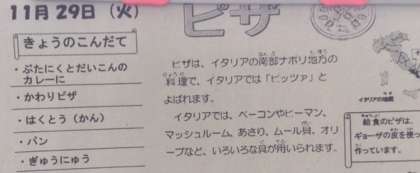 11月29日（火）
きょうのこんだて
・ぶたにくとだいこんの
カレーに
・かわりピザ
・はくとう（かん）
・パン
・ぎゅうにゅう
ピザ
ピザは、イタリアの南部ナポリ地方の
料理で、イタリアでは「ピッツァ」と
よばれます。
イタリアでは、ベーコンやピーマン、
マッシュルーム、あさり、ムール貝、オリ
ーブなど、いろいろな具が用いられます。
イタリアの地図
給食のピザは、
ギョーザの皮を使っ
作っています。